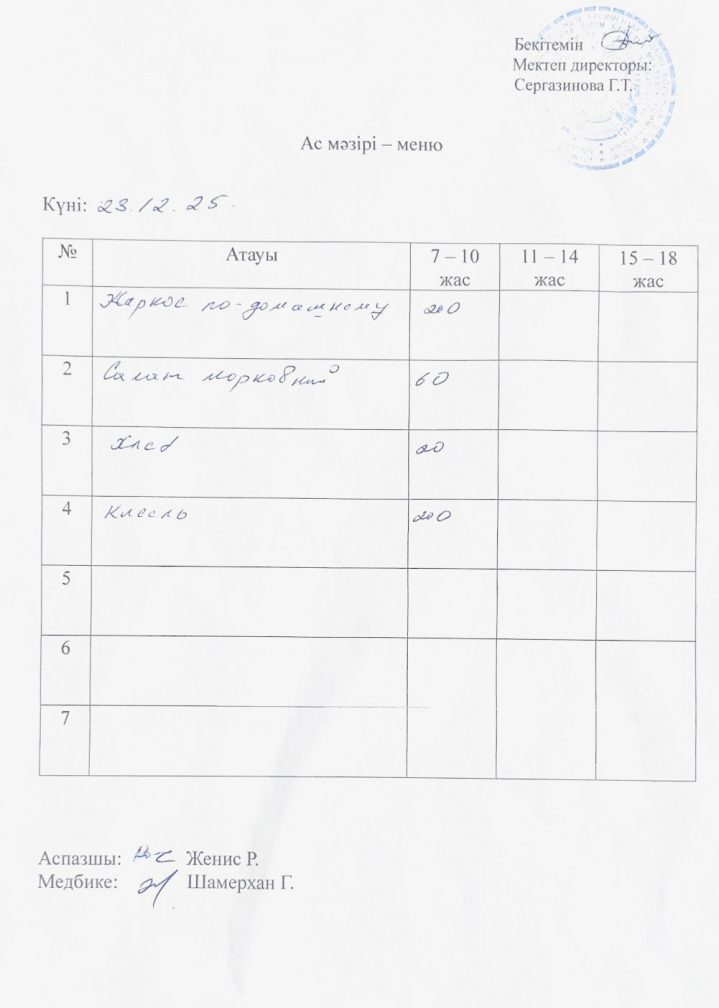 Бекітемін
Мектеп директоры:
Сергазинова Г.Т.
Ас мәзірі – меню
Күні: 23.12.25.
№ Атауы 7 – 10 жас 11 – 14 жас 15 – 18 жас
1 Жаркое по-домашнему 200
2 Салат морковный 60
3 Хлеб 20
4 Кисель 200
5
6
7
Аспазшы: Женис Р.
Медбике: Шамерхан Г.